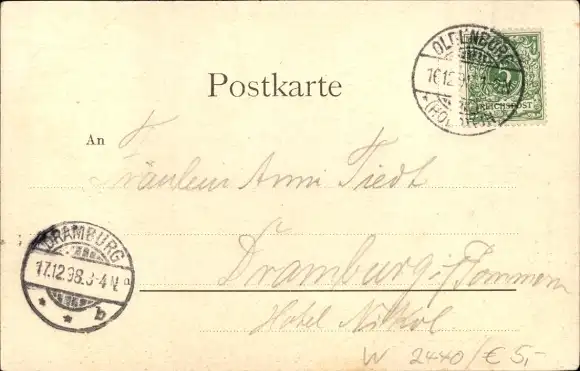 Postkarte
OLDENBURG
16.12.98
(HOLSTEIN)
5
REICHSPOST
An
Fräulein Anni Tiedt
DRAMBURG
17.12.98.3-4N
b
Dramburg i/Pommern
Hotel Nikol
W 2440/€ 5,-